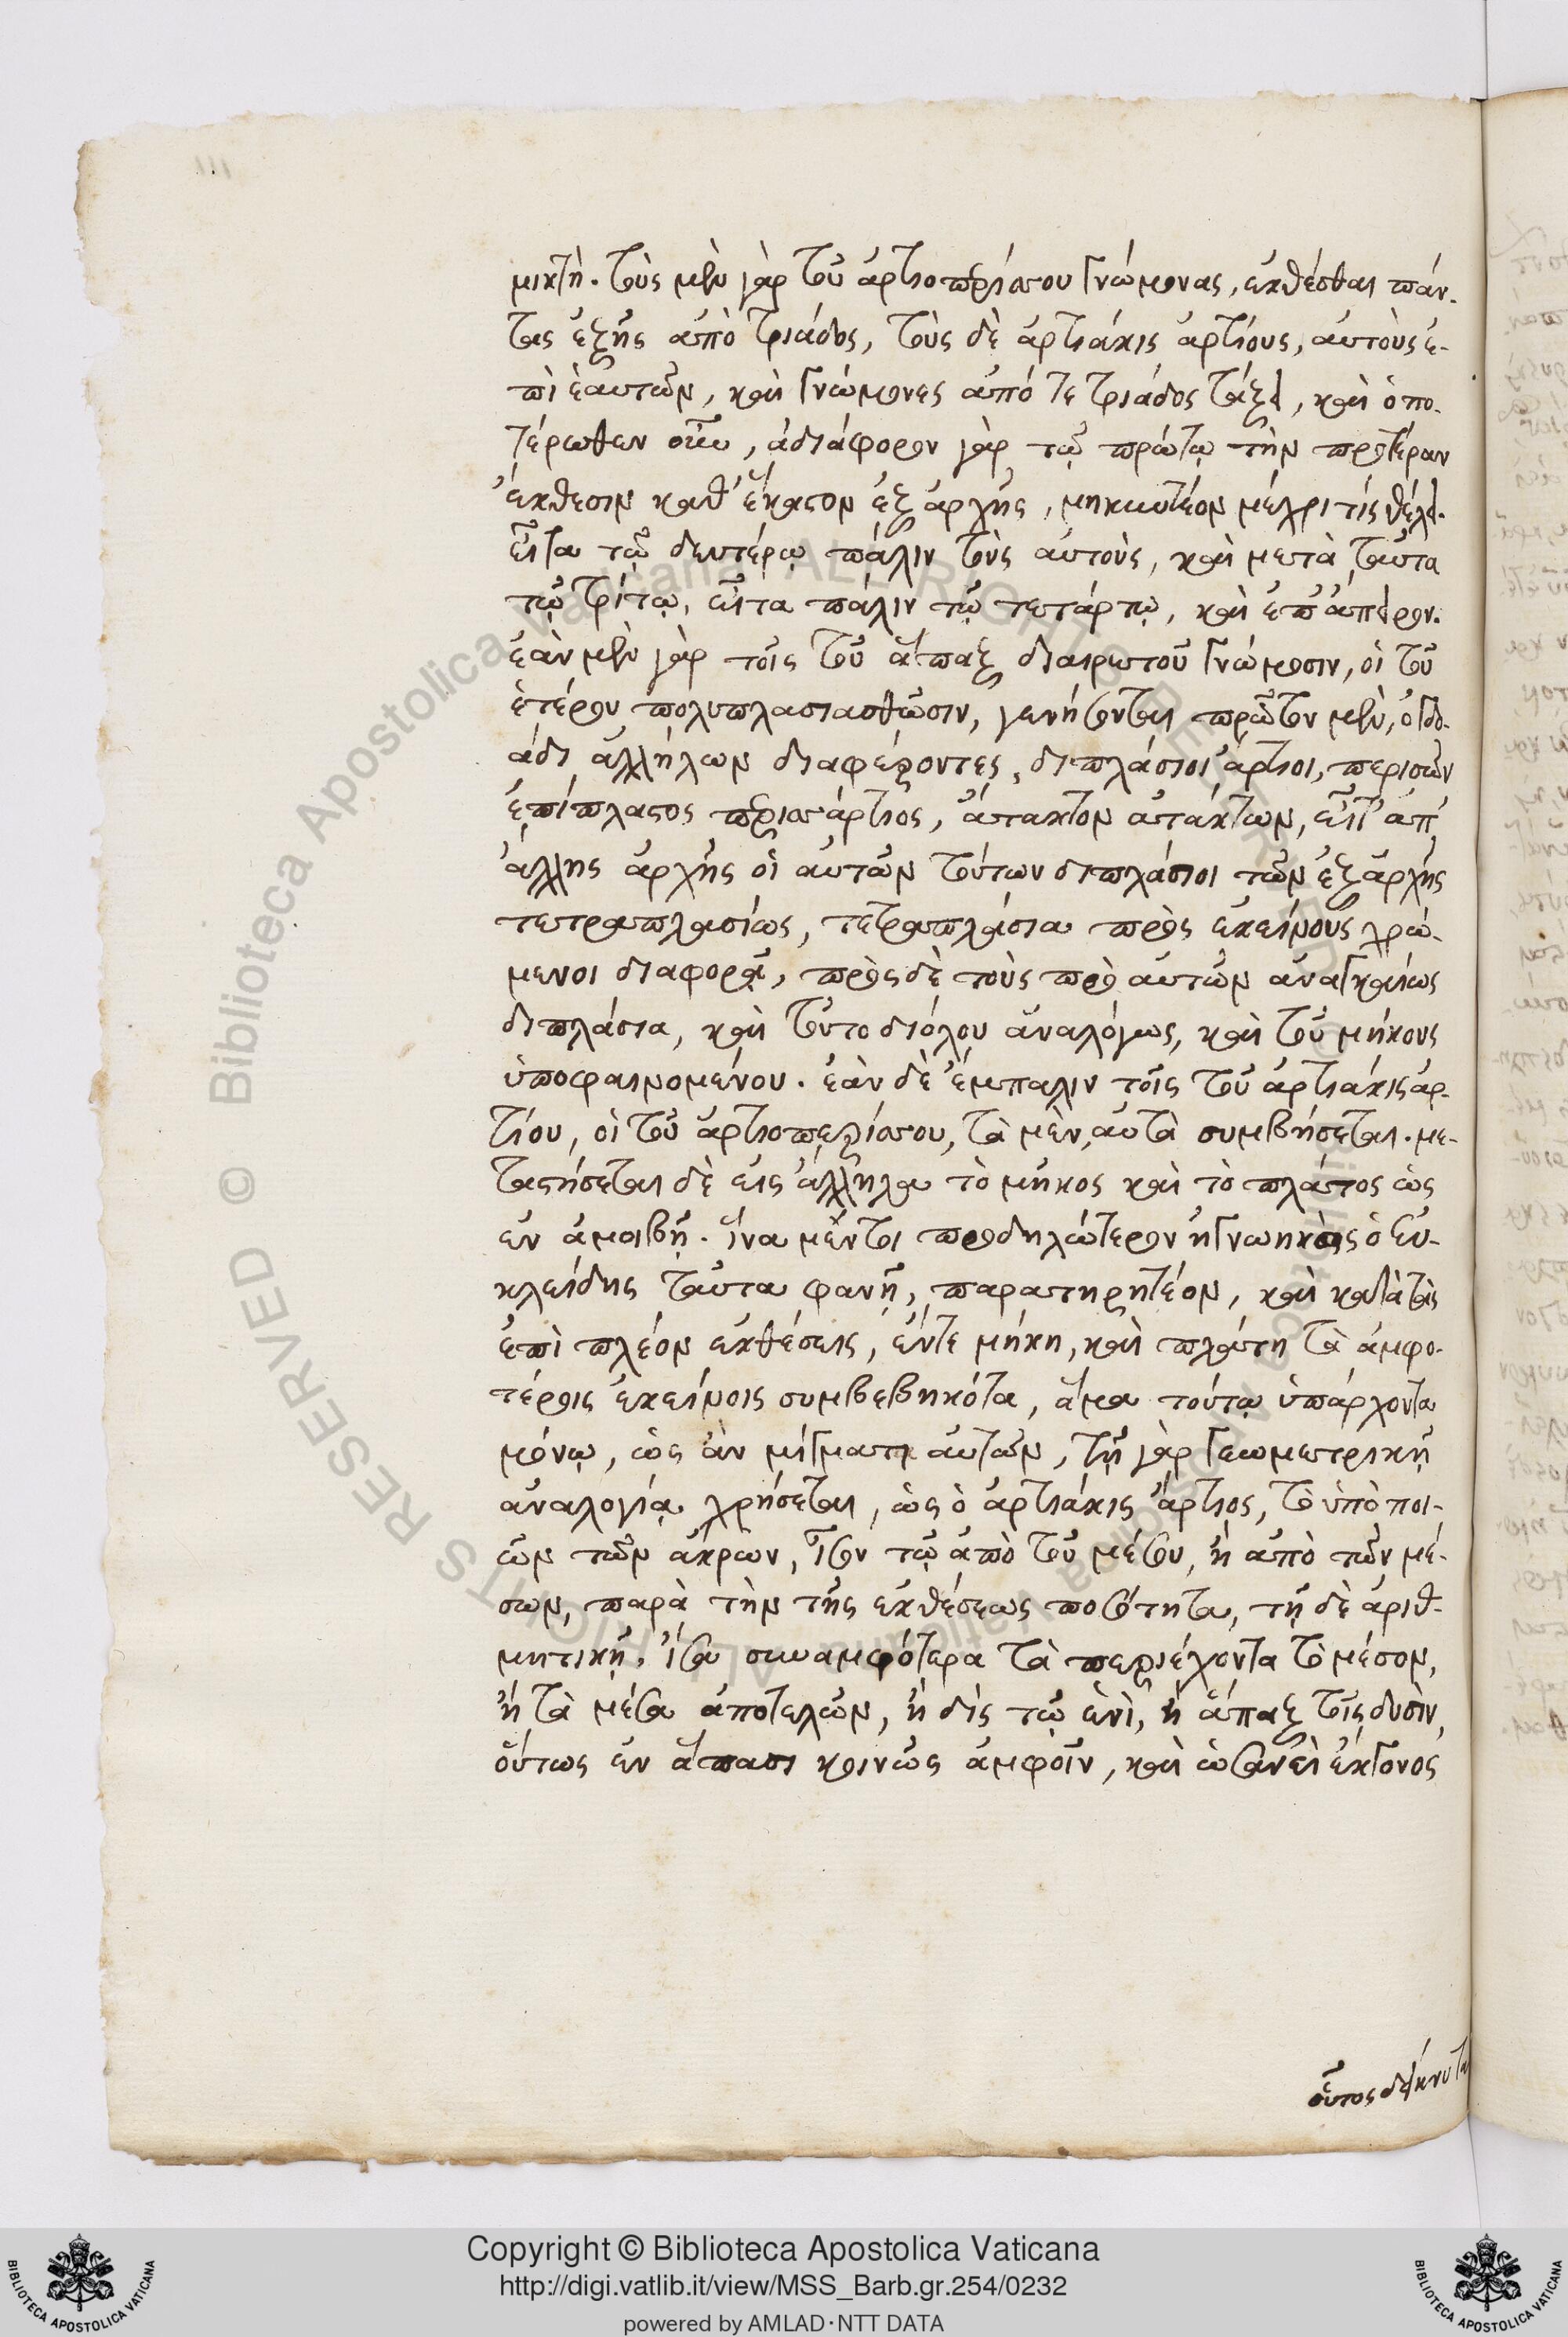 μικτὴ. τοὺς μὲν γὰρ τοῦ ἀρτιοπερίσσου γνώμονας, ἐκθέσθαι πάν-
τας ἑξῆς ἀπὸ τριάδος, τοὺς δὲ ἀρτιάκις ἀρτίους, αὐτοὺς ἐ-
πὶ ἑαυτῶν, καὶ γνώμονες ἀπό τε τριάδος τάξει, καὶ ὁπο-
τέρωθεν οὖν, ἀδιάφορον γὰρ τῷ πρώτῳ τὴν προτέραν
ἔκθεσιν καθ' ἕκαστον ἐξ ἀρχῆς, μηκυντέον μέχρι τίς θέλει.
εἶτα τῷ δευτέρῳ πάλιν τοὺς αὐτοὺς, καὶ μετὰ ταῦτα
τῷ τρίτῳ, εἶτα πάλιν τῷ τετάρτῳ, καὶ ἐπ' ἄπειρον.
ἐὰν μὲν γὰρ τοῖς τοῦ ἅπαξ διαιρετοῦ γνώμοσιν, οἱ τοῦ
ἑτέρου πολυπλασιασθῶσιν, γενήσονται πρῶτον μὲν, ὀγδο-
άδι ἀλλήλων διαφέροντες, διπλάσιοι ἄρτιοι, περισσῶν
ἐπίπλατος περισσάρτιος, ἄτακτον ἀτάκτων, εἶτ' ἀπ'
ἄλλης ἀρχῆς οἱ αὐτῶν τούτων διπλάσιοι τῶν ἐξ ἀρχῆς
τετραπλασίως, τετραπλάσια πρὸς ἐκείνους χρώ-
μενοι διαφορᾷ, πρὸς δὲ τοὺς πρὸ αὐτῶν ἀναγκαίως
διπλάσια, καὶ τοῦτο διόλου ἀναλόγως, καὶ τοῦ μήκους
ὑποφαινομένου. ἐὰν δὲ ἔμπαλιν τοῖς τοῦ ἀρτιάκις ἀρ-
τίου, οἱ τοῦ ἀρτιοπερίσσου, τὰ μὲν, αὐτὰ συμβήσεται. με-
ταστήσεται δὲ εἰς ἄλληλα τὸ μῆκος καὶ τὸ πλάτος ὡς
ἐν ἀμοιβῇ. ἵνα μέντοι προδηλότερον ἠγνωηκὼς ὁ Εὐ-
κλείδης ταῦτα φανῇ, παρατηρητέον, καὶ κατὰ τὰς
ἐπὶ πλέον ἐκθέσεις, ἔντε μήκη, καὶ πλάτη τὰ ἀμφο-
τέροις ἐκείνοις συμβεβηκότα, ἅμα τούτῳ ὑπάρχοντα
μόνῳ, ὡς ἂν μίγματι αὐτῶν, τῇ γὰρ γεωμετρικῇ
ἀναλογίᾳ χρήσεται, ὡς ὁ ἀρτιάκις ἄρτιος, τὸ ὑπὸ ποι-
ῶν τῶν ἄκρων, ἴσον τῷ ἀπὸ τοῦ μέσου, ἢ ἀπὸ τῶν μέ-
σων, παρὰ τὴν τῆς ἐκθέσεως ποσότητα, τῇ δὲ ἀριθ-
μητικῇ, ἴσα συναμφότερα τὰ περιέχοντα τὸ μέσον,
ἢ τὰ μέσα ἀποτελῶν, ἢ δὶς τῷ ἑνὶ, ἢ ἅπαξ τοῖς δυσὶν,
οὕτως ἐν ἅπασι κοινῶς ἀμφοῖν, καὶ ὡσανεὶ ἔκγονος
οὗτος δείκνυται